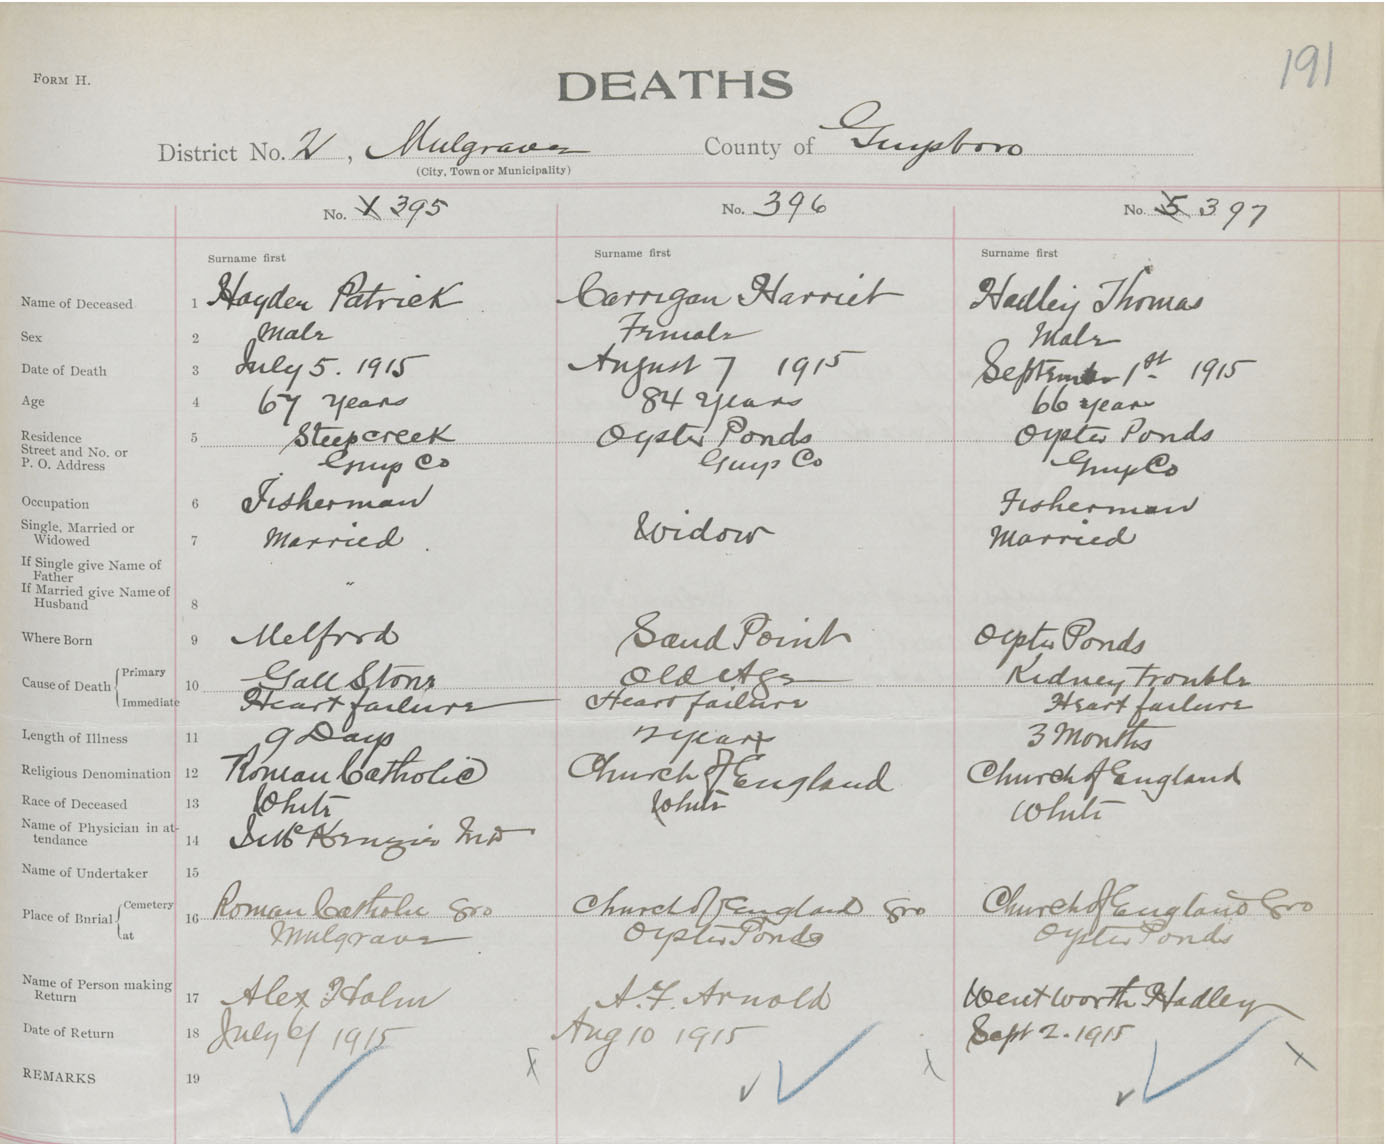 191
FORM H.
DEATHS
District No. 2, Mulgrave County of Guysboro
(City, Town or Municipality)
No. 1 395 No. 396 No. 5 397
Surname first Surname first Surname first
Name of Deceased 1 Hayden Patrick Carrigan Harriet Hadley Thomas
Sex 2 Male Female Male
Date of Death 3 July 5. 1915 August 7 1915 September 1st 1915
Age 4 67 years 84 years 66 years
Residence 5 Steepcreek Oyster Ponds Oyster Ponds
Street and No. or
P. O. Address Guys Co Guys Co Guys Co
Occupation 6 Fisherman Fisherman
Single, Married or
Widowed 7 Married Widow Married
If Single give Name of
Father "
If Married give Name of
Husband 8
Where Born 9 Melford Sand Point Oyster Ponds
Cause of Death Primary 10 Gall Stone Old Age Kidney trouble
Immediate Heart failure Heart failure Heart failure
Length of Illness 11 9 Days 2 years 3 Months
Religious Denomination 12 Roman Catholic Church of England Church of England
Race of Deceased 13 White White White
Name of Physician in at-
tendance 14 McKenzie MD
Name of Undertaker 15
Place of Burial Cemetery 16 Roman Catholic Gro Church of England Gro Church of England Gro
at Mulgrave Oyster Ponds Oyster Ponds
Name of Person making
Return 17 Alex Holm A. F. Arnold Wentworth Hadley
Date of Return 18 July 6 1915 Aug 10 1915 Sept 2. 1915
REMARKS 19